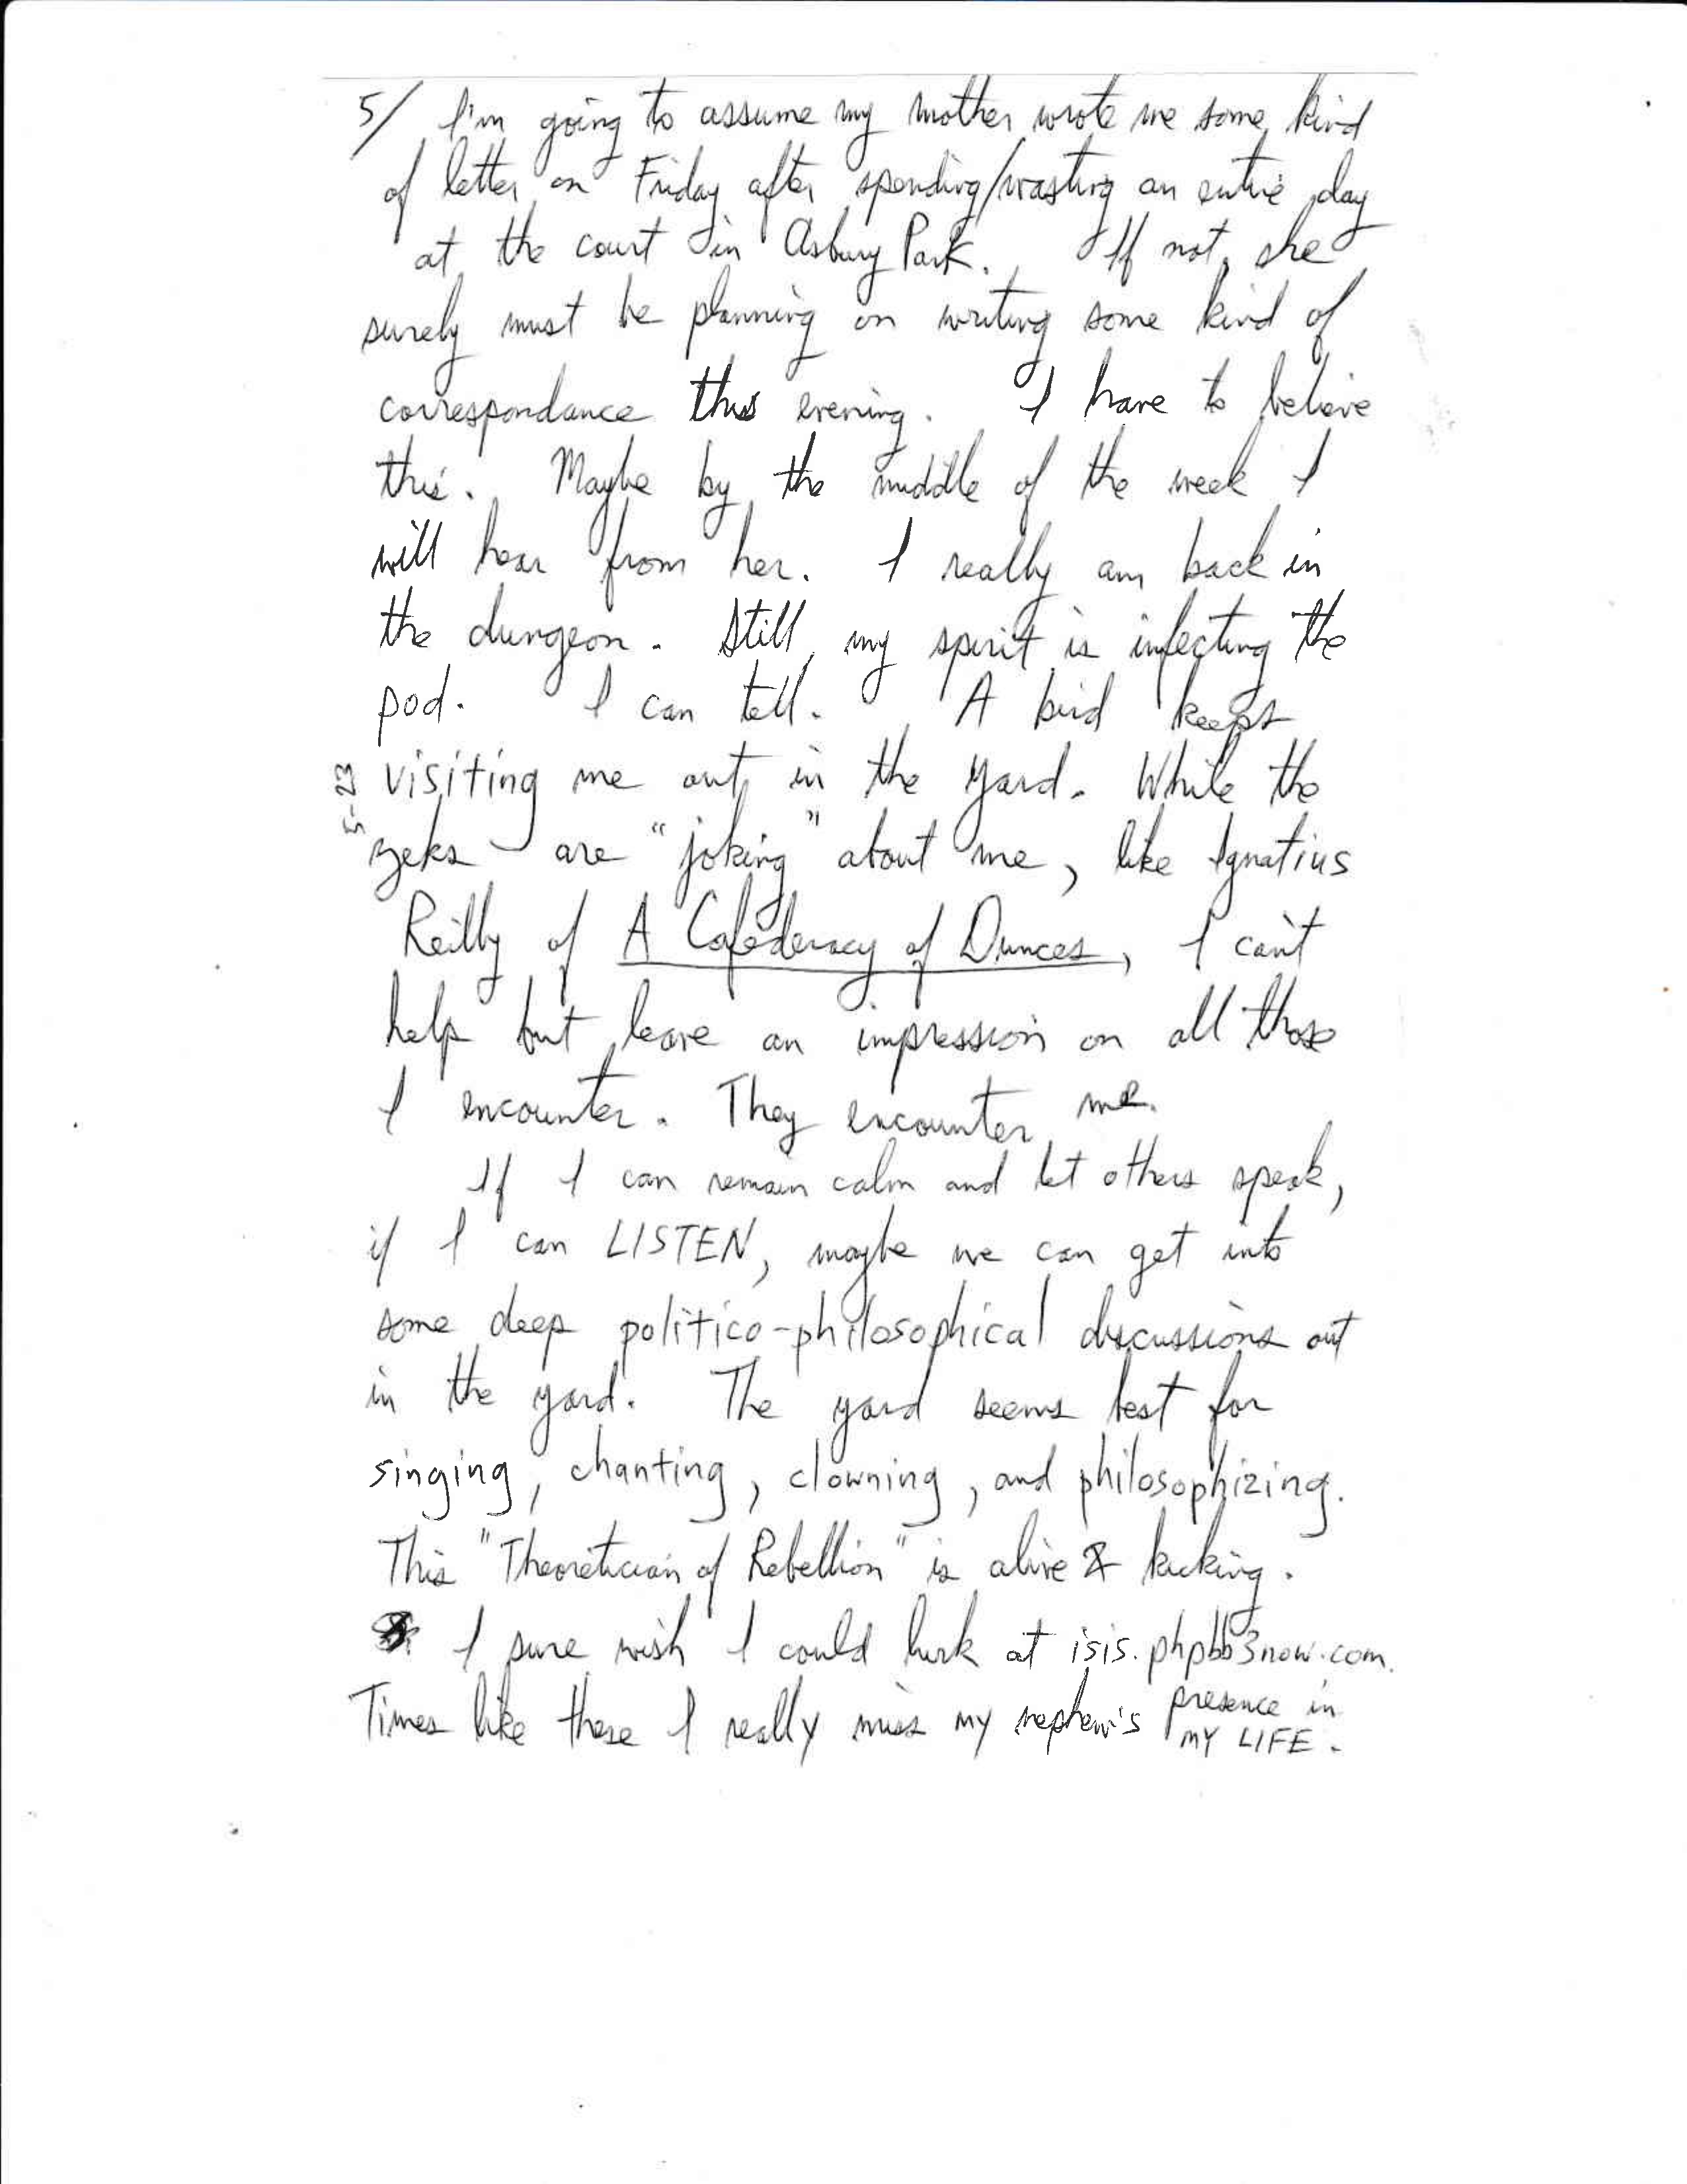 5/ I'm going to assume my mother wrote me some kind
of letter on Friday after spending/wasting an entire day
at the court in Asbury Park. If not, she
surely must be planning on writing some kind of
correspondance this evening. I have to believe
this. Maybe by the middle of the week I
will hear from her. I really am back in
the dungeon. Still, my spirit is infecting the
pod. I can tell. A bird keeps
visiting me out in the yard. While the
5-23
zeks are "joking" about me, like Ignatius
Reilly of A Cofederacy of Dunces, I can't
help but leave an impression on all those
I encounter. They encounter me.
If I can remain calm and let others speak,
if I can LISTEN, maybe we can get into
some deep politico-philosophical discussions out
in the yard. The yard seems best for
singing, chanting, clowning, and philosophizing.
This "Theoretician of Rebellion" is alive & kicking.
I sure wish I could lurk at isis.phpbb3now.com.
Times like these I really miss my nephew's presence in
MY LIFE.